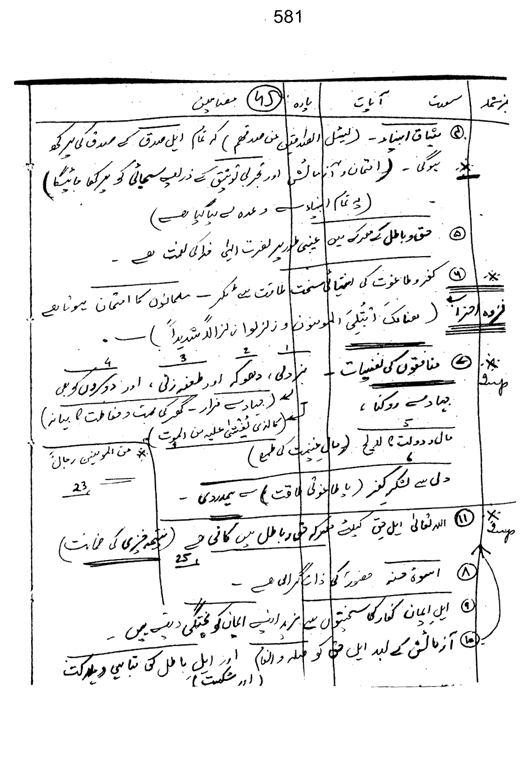 581
نمبر شمار سورت آیات پارہ 45 مضامین
④ میثاق انبیاء - (لیسئل الصادقین عن صدقهم) کہ تمام اہل صدق کے صدق کی پرکھ
ہوگی - (امتحان و آزمائش اور تجربی توثیق کے ذریعے سچائی کو پرکھا جائیگا)
(یہ تمام انبیاء سے وعدہ لے لیا گیا ہے)
⑤ حق و باطل کے معرکہ میں غیبی طور پر نصرت الٰہی خدا کی نعمت ہے -
⑥ کفر و طاغوت کی انتہائی سخت طاقت سے ٹکر - مسلمانوں کا امتحان ہوتا ہے
غزوہ احزاب (هنالك ابتلي المومنون و زلزلوا زلزالا شديداً) -
⑦ منافقوں کی نفسیات - بزدلی، دھوکہ اور طعنہ زنی، اور دوسروں کو بھی
1 2 3 4
جہاد سے روکنا، (جہاد سے فرار - گھر کی حفاظت کا بہانہ)
(كالذي يغشى عليه من الموت)
5
مال و دولت کا لالچ (مال غنیمت کی طمع)
* من المومنين رجالٌ
23
6
دلی سے لشکر کفر (یا طاغوتی طاقت) سے ہمدردی -
⑪ اللہ تعالیٰ اہل حق کیلئے معرکہ حق و باطل میں کافی ہے (نتیجہ خیزی کی ضمانت)
25
⑧ اسوۂ حسنہ حضورؐ کی ذات گرامی ہے -
⑨ اہل ایمان کفار کا سختیوں سے مزید اپنے ایمان کو پختگی دیتے ہیں -
⑩ آزمائش کے بعد اہل حق کو صلہ و انعام اور اہل باطل کی تباہی و ہلاکت
(اور شکست)